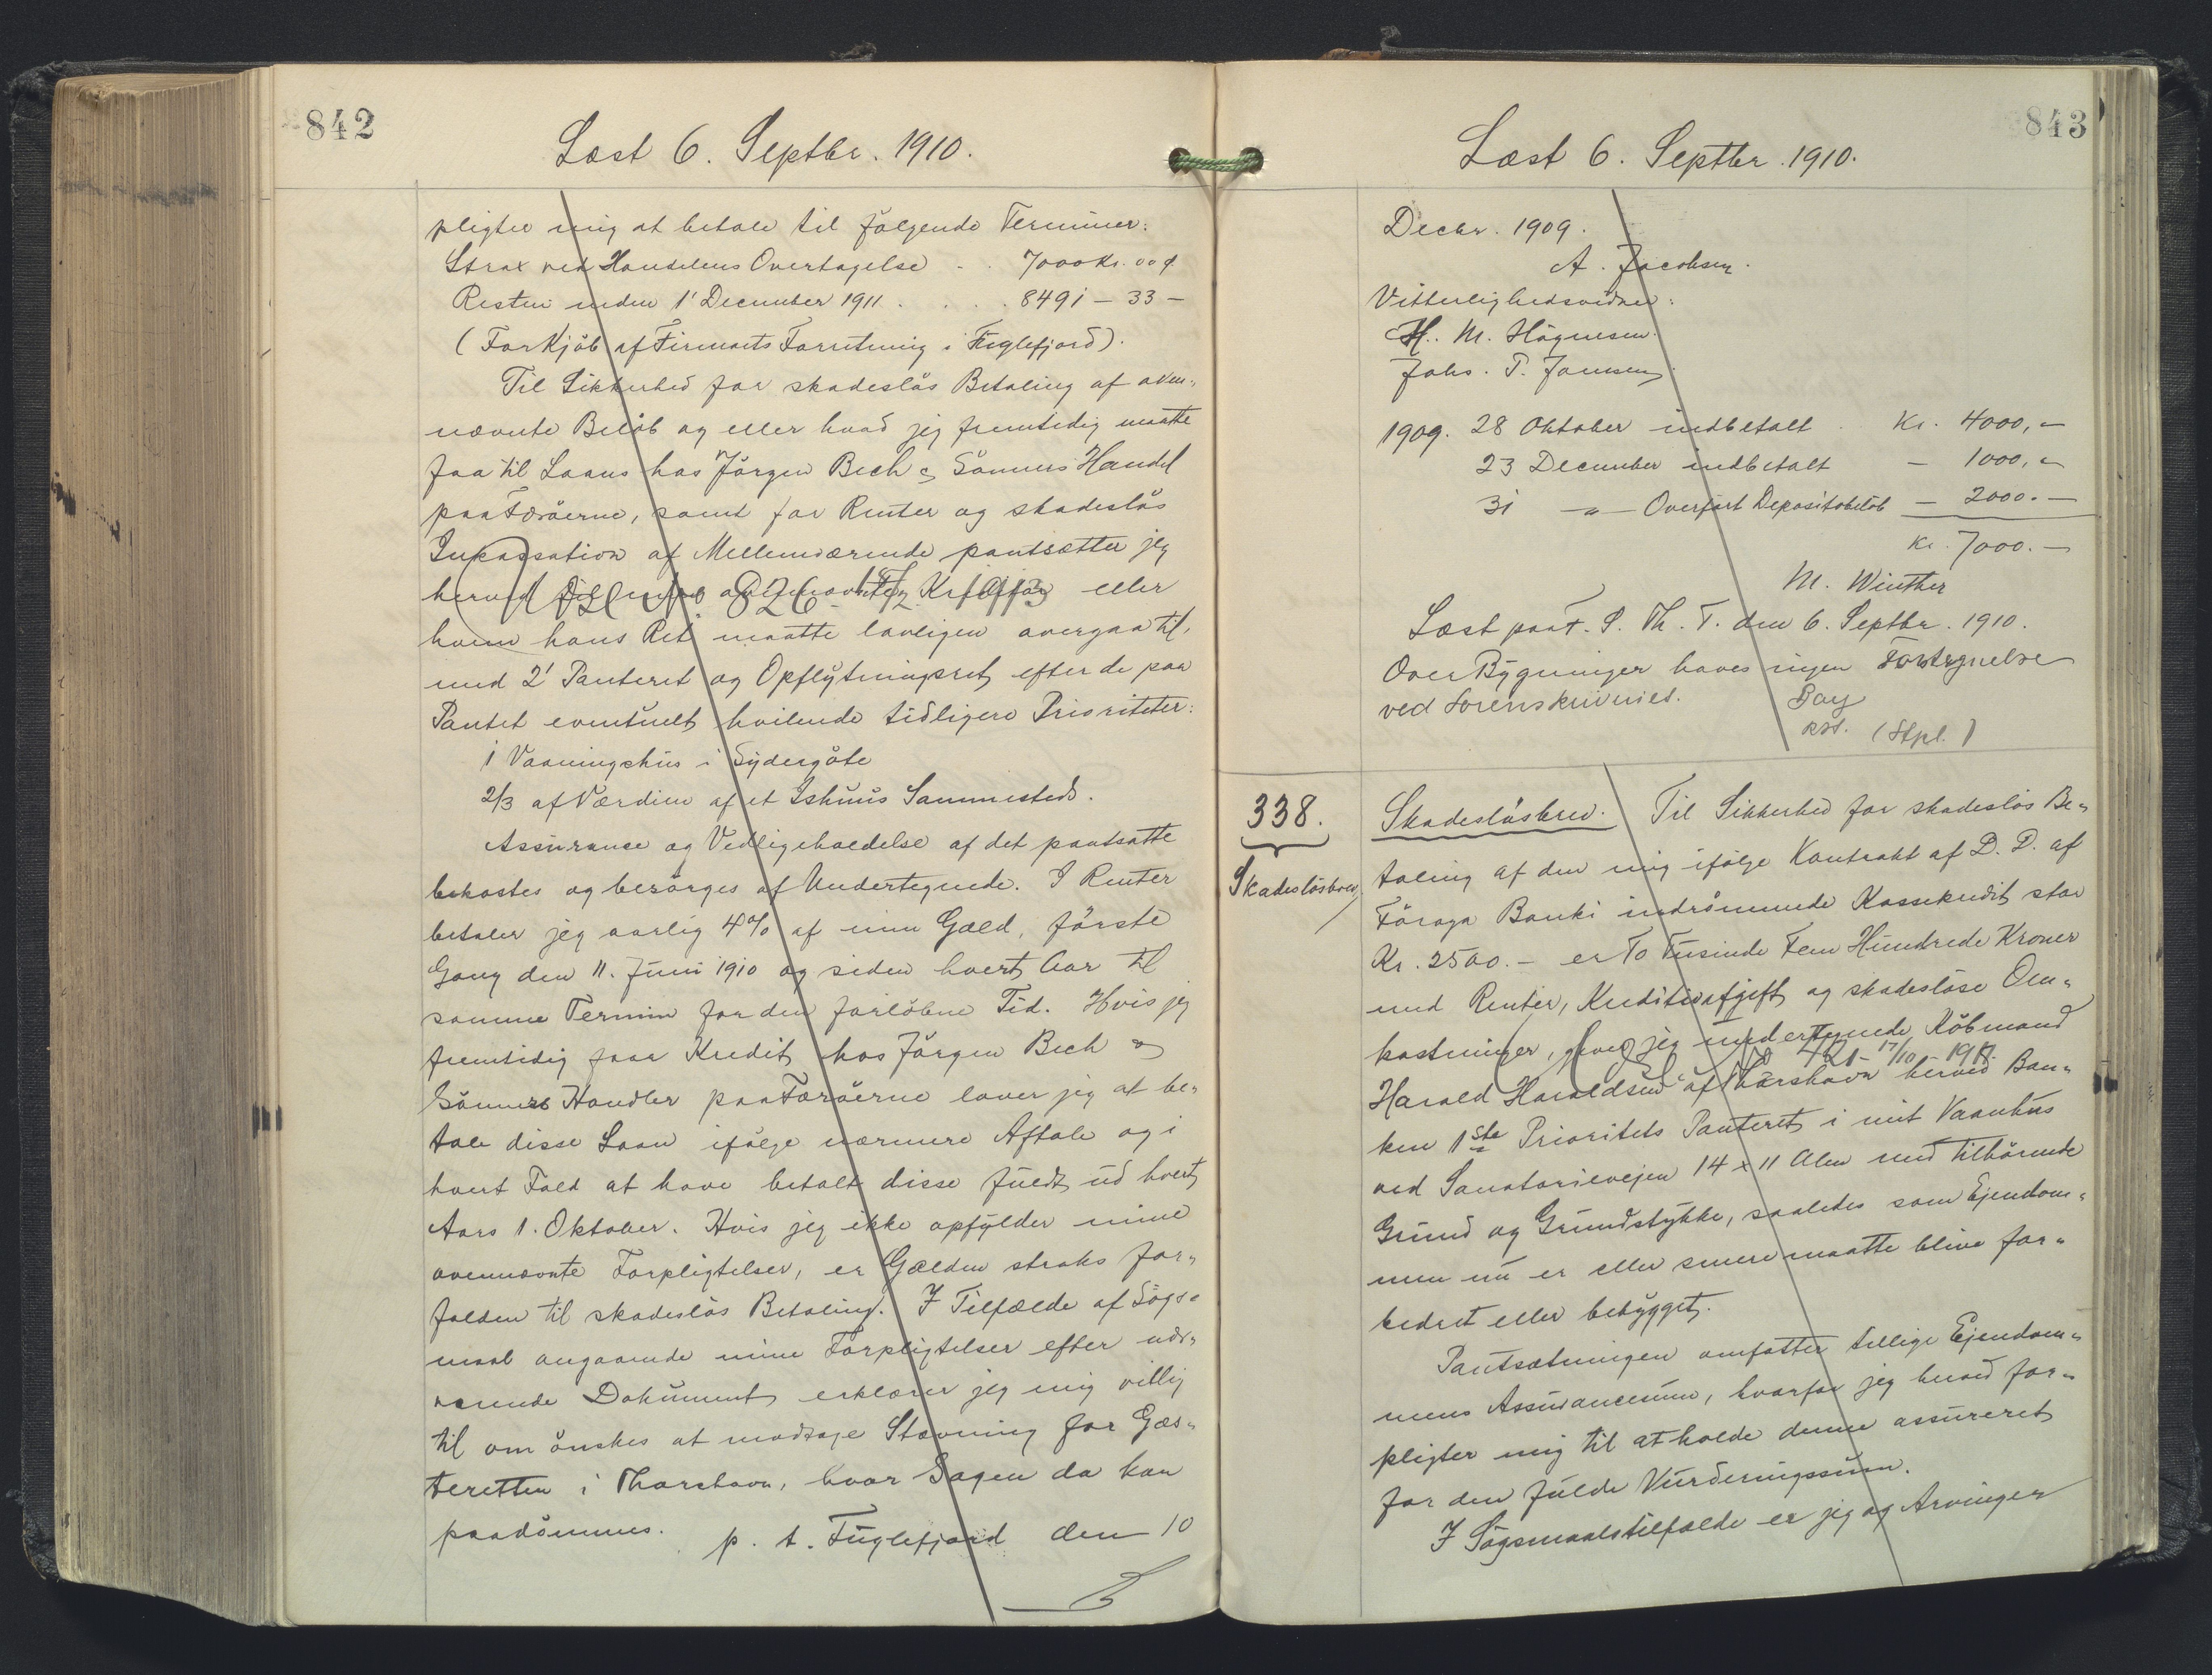 842
Læst 6. Septbr. 1910.
pligter mig at betale til følgende Terminer:
Strax ved Handelens Overtagelse . . 7000 Kr. 00 ø
Resten inden 1' December 1911 . . . . 8491 – 33 –
(For Kjöb af Firmaets Forretning i Fuglefjord).
Til Sikkerhed for skadeslös Betaling af oven-
nævnte Belöb og eller hvad jeg fremtidig maatte
faa til Laans hos Jörgen Bech & Sönners Handel
paa Færöerne, samt for Renter og skadeslös
Inkassation af Mellemværende pantsætter jeg
herved eller
hvem hans Ret maatte lovligen overgaa til,
med 2' Panteret og Opflytningsret efter de paa
Pantet eventuelt hvilende tidligere Prioriteter:
1 Vaaningshus i Sydergöte
2/3 af Værdien af et Ishuus Sammesteds.
Assurance og Vedligeholdelse af det pantsatte
bekostes og besörges af Undertegnede. I Renter
betaler jeg aarlig 4% af min Gæld, förste
Gang den 11. Juni 1910 og siden hvert Aar til
samme Termin for den forlöbne Tid. Hvis jeg
fremtidig faar Kredit hos Jörgen Bech &
Sönners Handler paa Færöerne lover jeg at be-
tale disse Laan ifølge nærmere Aftale og i
hvert Fald at have betalt disse fuldt ud hvert
Aars 1. Oktober. Hvis jeg ikke opfylder mine
ovennævnte Forpligtelser, er Gælden straks for-
falden til skadeslös Betaling. I Tilfælde af Sögs-
maal angaaende mine Forpligtelser efter nær-
værende Dokument erklærer jeg mig villig
til om önskes at modtage Stævning for Gæs-
teretten i Thorshavn, hvor Sagen da kan
paadömmes. p. t. Fuglefjord den 10
843
Læst 6. Septbr. 1910.
Decbr. 1909.
A. Jacobsen.
Vitterlighedsvidner:
H. M. Högnesen.
Johs. P. Joensen.
1909. 28 Oktober indbetalt . Kr. 4000,–
23 December indbetalt – 1000,–
31 –"– Overført Depositobelöb – 2000.–
Kr. 7000.–
M. Winther
Læst paa F. S. Th. T. den 6. Septbr. 1910.
Over Bygninger haves ingen Fortegnelse
ved Sorenskriveriet. Bay
cst. (Stpl.)
338.
Skadeslösbrev
Skadeslösbrev. Til Sikkerhed for skadeslös Be-
taling af den mig ifølge Kontrakt af D. D. af
Föroya Banki indrömmede Kassekredit stor
Kr. 2500.– er To Tusinde Fem Hundrede Kroner
med Renter, Kreditafgift og skadeslöse Om-
kostninger, giver jeg undertegnede Köbmand
Harald Haraldsen af Thorshavn herved Ban-
ken 1ste Prioritets Panteret i mit Vaanhus
ved Sanatorievejen 14 x 11 Alen med tilhörende
Grund og Grundstykke, saaledes som Ejendom-
men nu er eller senere maatte blive for-
bedret eller bebygget.
Pantsætningen omfatter tillige Ejendom-
mens Assurancesum, hvorfor jeg herved for-
pligter mig til at holde denne assureret
for den fulde Vurderingssum.
I Sögsmaalstilfælde er jeg og Arvinger